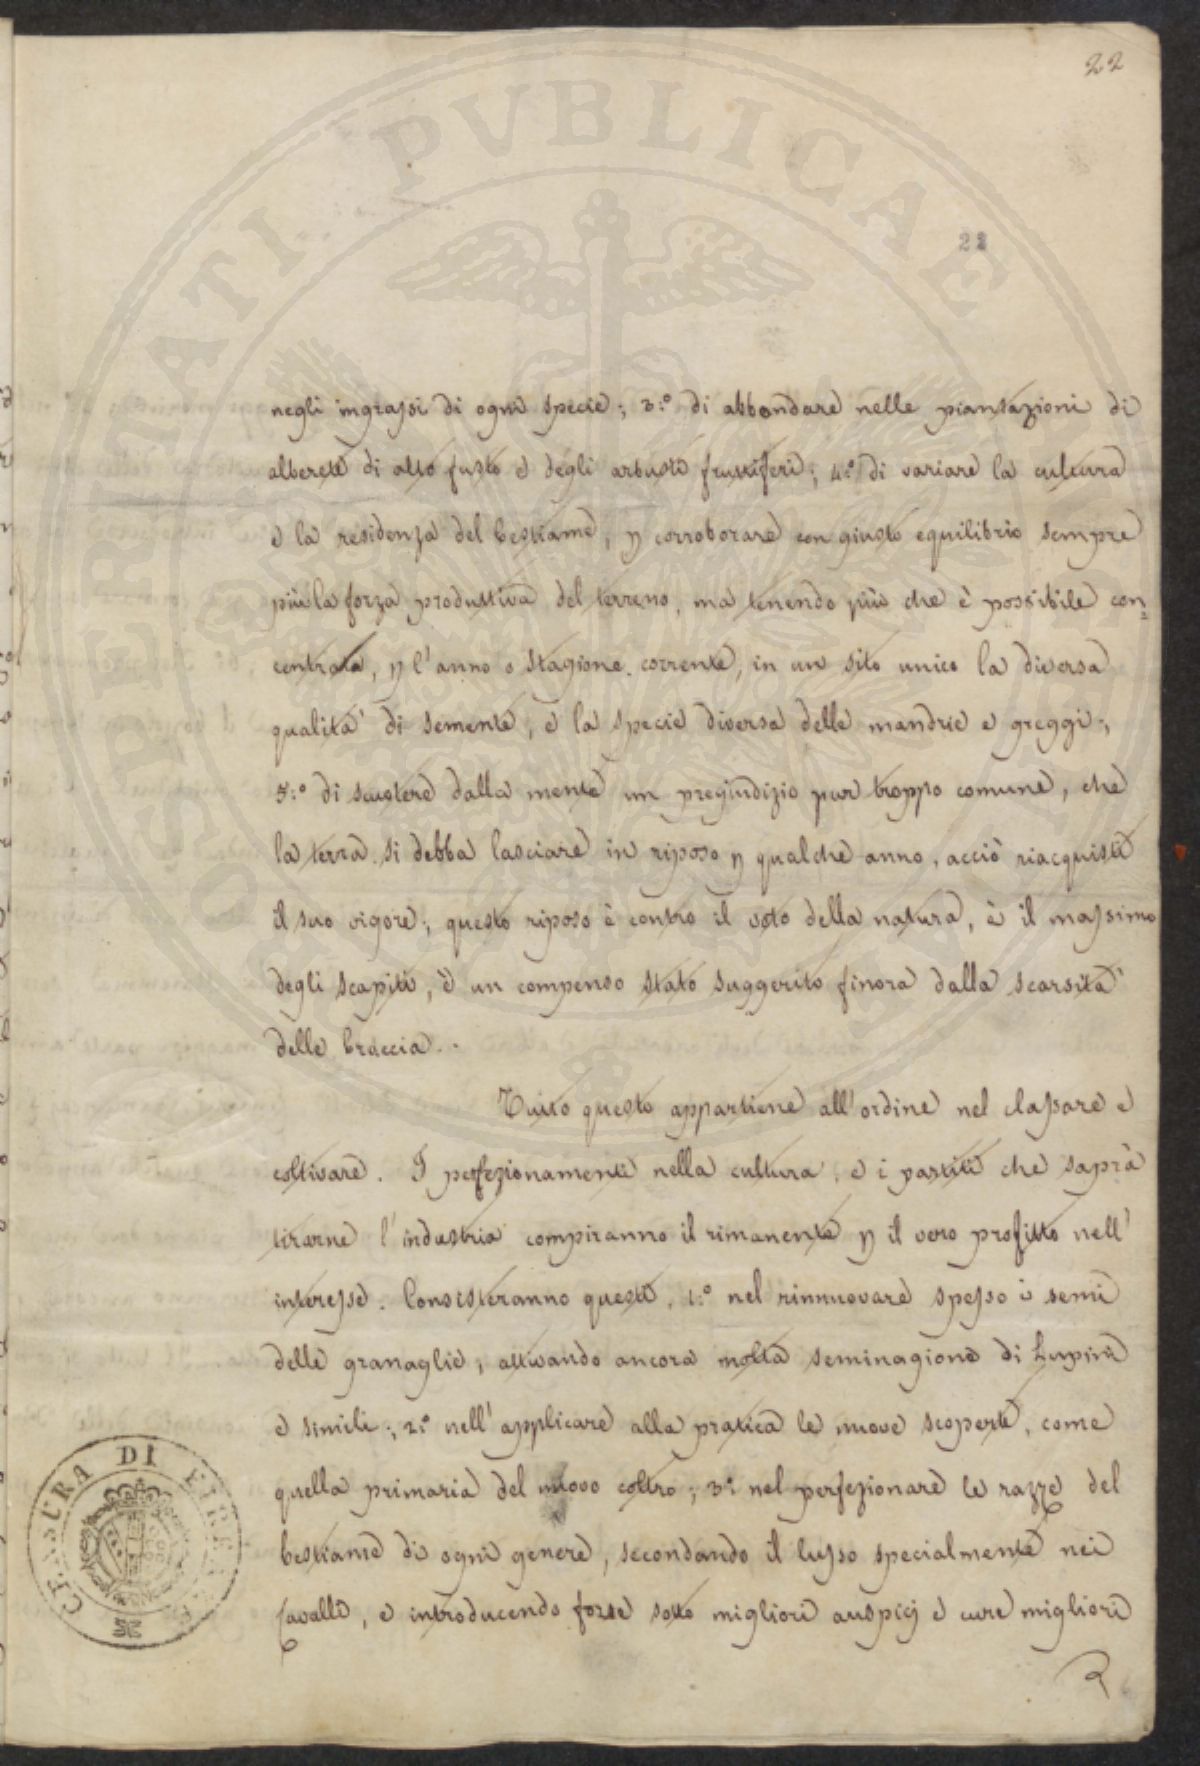 22
22
negli ingrassi di ogni specie; 3.° di abbondare nelle piantazioni di
alberete di alto fusto e degli arbusti fruttiferi; 4.° di variare la cultura
e la residenza del bestiame, p corroborare con giusto equilibrio sempre
più la forza produttiva del terreno, ma tenendo più che è possibile con=
centrata, p l'anno o stagione corrente, in un sito unico la diversa
qualità di semente, e la specie diversa delle mandrie e greggi;
5.° di scuotere dalla mente un pregiudizio pur troppo comune, che
la terra si debba lasciare in riposo p qualche anno, acciò riacquisti
il suo vigore; questo riposo è contro il voto della natura, è il massimo
degli scapiti, è un compenso stato suggerito finora dalla scarsità
delle braccia..
Tutto questo appartiene all'ordine nel classare e
coltivare. I perfezionamenti nella cultura, e i partiti che saprà
tirarne l'industria compiranno il rimanente p il vero profitto nell'
interesse. Consisteranno questi, 1.° nel rinnuovare spesso i semi
delle granaglie, attivando ancora molta seminagione di Lupini
e simili; 2.° nell'applicare alla pratica le nuove scoperte, come
quella primaria del nuovo coltro; 3.° nel perfezionare le razze del
bestiame di ogni genere, secondando il lusso specialmente nei
Cavalli, e introducendo forse sotto migliori auspicj e cure migliori
CENSURA DI FIRENZE